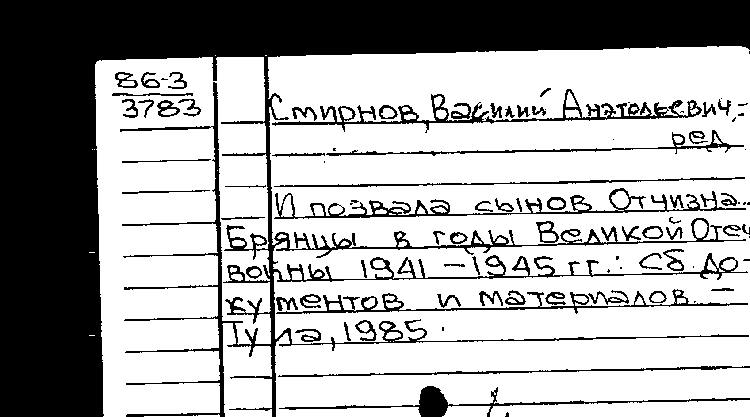 86-3
3783
Смирнов, Василий Анатольевич,-
ред.
И позвала сынов Отчизна...
Брянцы в годы Великой Отеч
войны 1941 - 1945 гг.: Сб. до-
кументов и материалов. -
Тула, 1985.